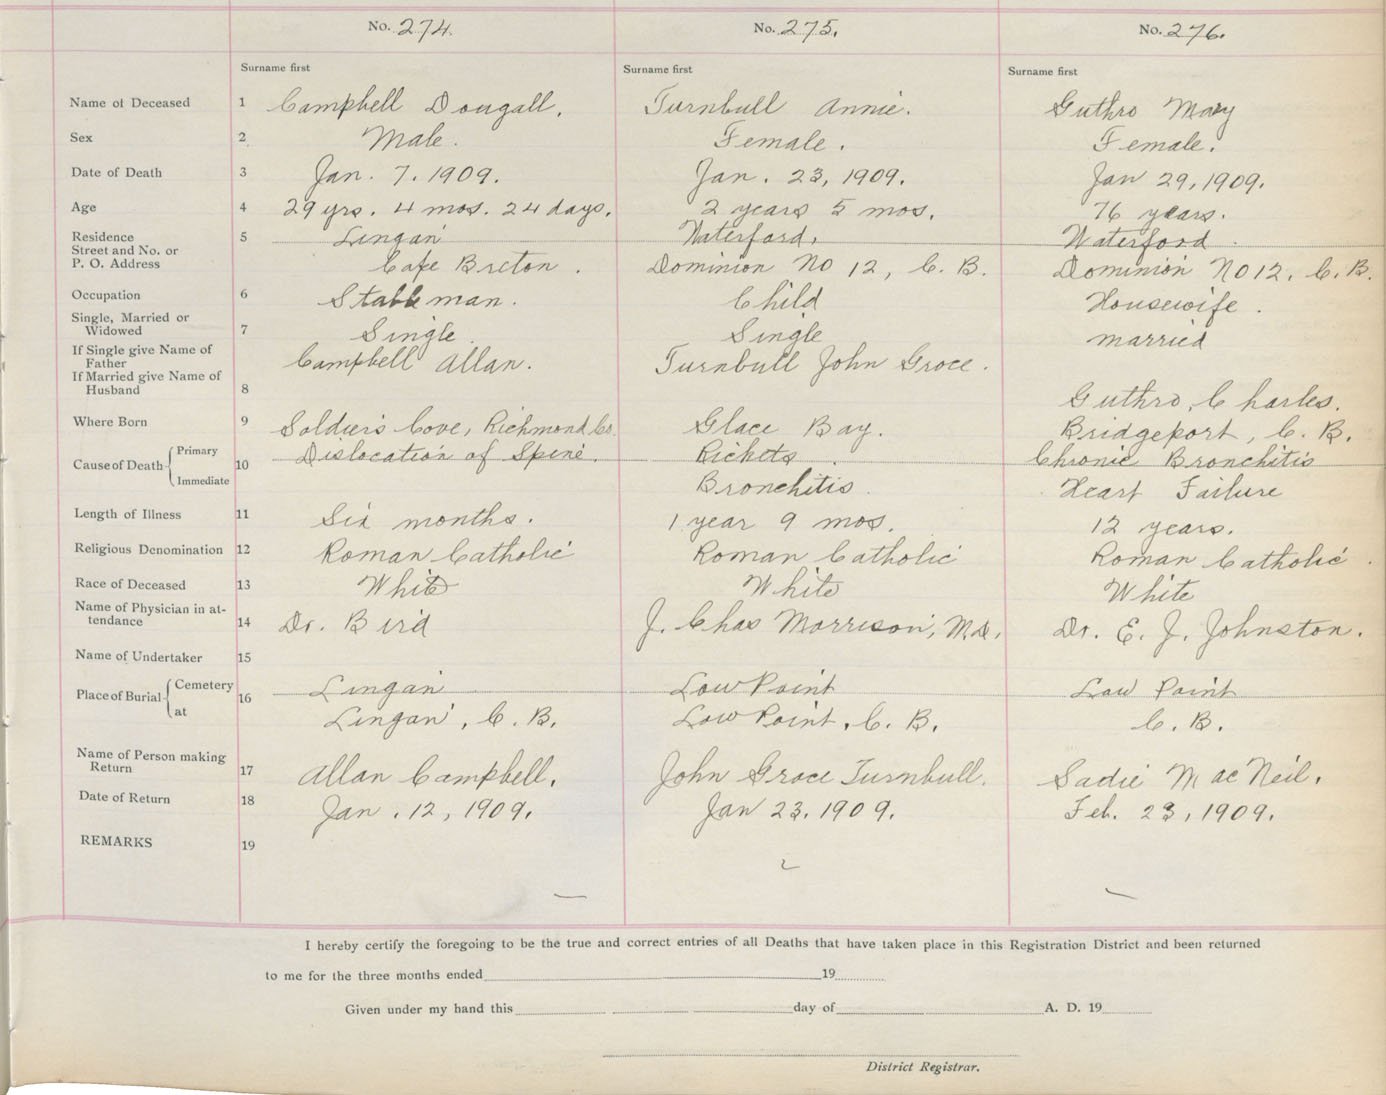 No. 274. No. 275. No. 276.
Surname first Surname first Surname first
Name of Deceased 1 Campbell Dougall. Turnbull Annie. Guthro Mary
Sex 2 Male. Female. Female.
Date of Death 3 Jan. 7. 1909. Jan. 23, 1909. Jan 29, 1909.
Age 4 29 yrs. 4 mos. 24 days. 2 years 5 mos. 76 years.
Residence 5 Lingan Waterford, Waterford
Street and No. or
P. O. Address Cape Breton. Dominion No 12, C. B. Dominion No 12, C. B.
Occupation 6 Stableman. Child Housewife.
Single, Married or
Widowed 7 Single Single married
If Single give Name of
Father Campbell Allan. Turnbull John Grace.
If Married give Name of
Husband 8 Guthro, Charles.
Where Born 9 Soldier's Cove, Richmond Co. Glace Bay. Bridgeport, C. B.
Cause of Death Primary 10 Dislocation of Spine. Rickets. Chronic Bronchitis
Immediate Bronchitis. Heart Failure
Length of Illness 11 Six months. 1 year 9 mos. 12 years.
Religious Denomination 12 Roman Catholic Roman Catholic Roman Catholic.
Race of Deceased 13 White White White
Name of Physician in at-
tendance 14 Dr. Bird J. Chas Morrison, M.D. Dr. E. J. Johnston.
Name of Undertaker 15
Place of Burial Cemetery 16 Lingan Low Point Low Point
at Lingan, C. B. Low Point, C. B. C. B.
Name of Person making
Return 17 Allan Campbell. John Grace Turnbull. Sadie MacNeil.
Date of Return 18 Jan. 12, 1909. Jan 23. 1909. Feb. 23, 1909.
REMARKS 19
I hereby certify the foregoing to be the true and correct entries of all Deaths that have taken place in this Registration District and been returned
to me for the three months ended 19
Given under my hand this day of A. D. 19
District Registrar.